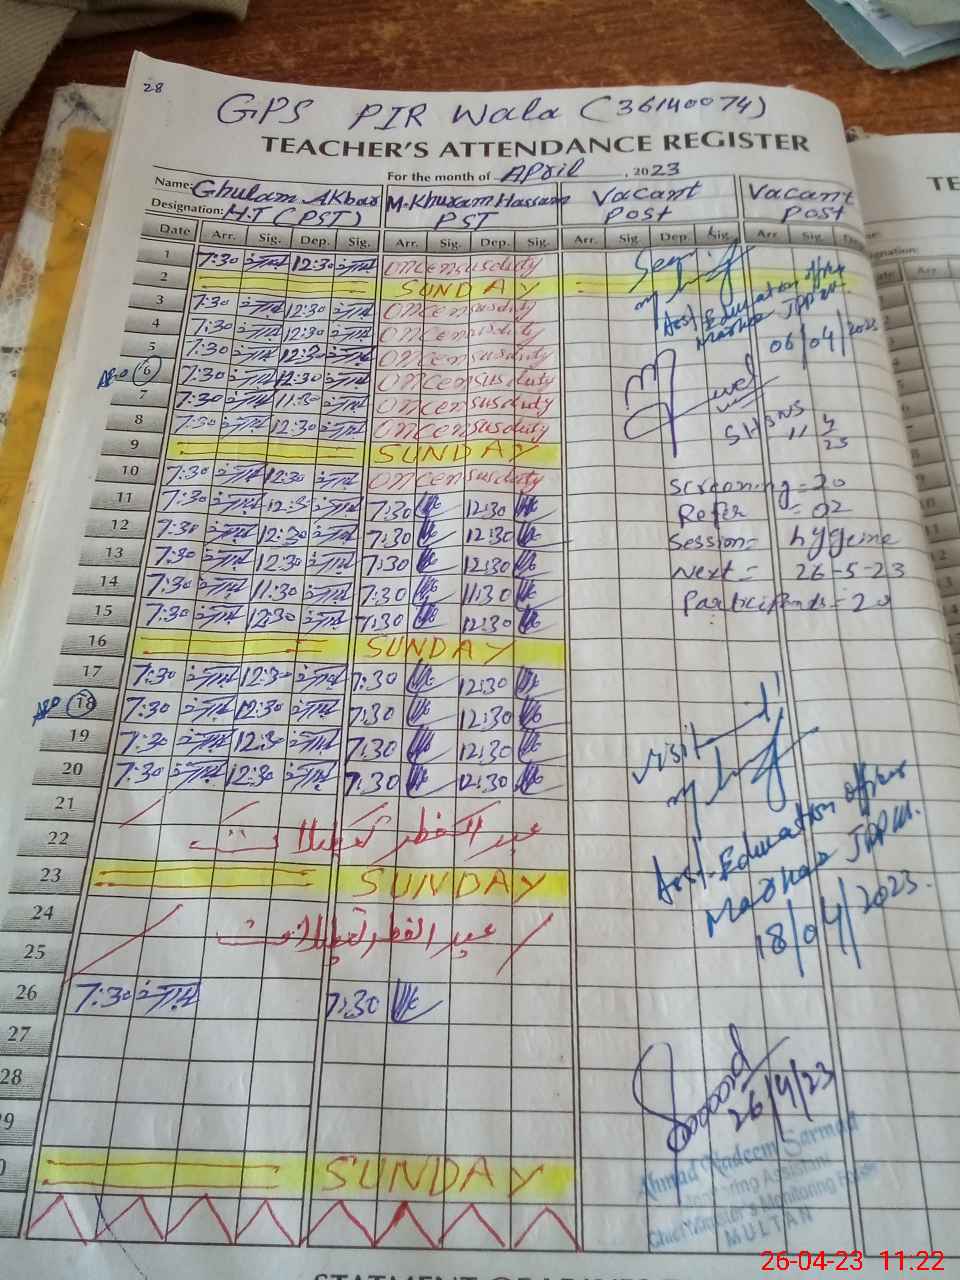 28
GPS PIR Wala (36140074)
TEACHER'S ATTENDANCE REGISTER
For the month of April, 2023
Name: Ghulam Akbar M. Khuram Hassan Vacant Vacant
Designation: H.T (PST) PST Post Post
Date Arr. Sig. Dep. Sig. Arr. Sig. Dep. Sig. Arr. Sig. Dep. Sig. Arr. Sig.
1 7:30 12:30 on census duty
2 SUNDAY
3 7:30 12:30 on census duty
4 7:30 12:30 on census duty
5 7:30 12:30 on census duty
AEO 6 7:30 12:30 on census duty
7 7:30 11:30 on census duty
8 7:30 12:30 on census duty
9 SUNDAY
10 7:30 12:30 on census duty
11 7:30 12:30 7:30 12:30
12 7:30 12:30 7:30 12:30
13 7:30 12:30 7:30 12:30
14 7:30 11:30 7:30 11:30
15 7:30 12:30 7:30 12:30
16 SUNDAY
17 7:30 12:30 7:30 12:30
AEO 18 7:30 12:30 7:30 12:30
19 7:30 12:30 7:30 12:30
20 7:30 12:30 7:30 12:30
21
22 عید الفطر تعطیلات
23 SUNDAY
24 عید الفطر تعطیلات
25
26 7:30 7:30
27
28
SUNDAY
Seen
Asst. Education officer
06/04/2023
SH&NS
11 4 23
Screening = 20
Refer = 02
Session = hygeine
Next = 26-5-23
Participants = 20
Visit
Asst. Education officer
18/04/2023.
26/4/23
Ahmad Nadeem Sarmad
Monitoring Assistant
Chief Minister's Monitoring Force
MULTAN
26-04-23 11:22